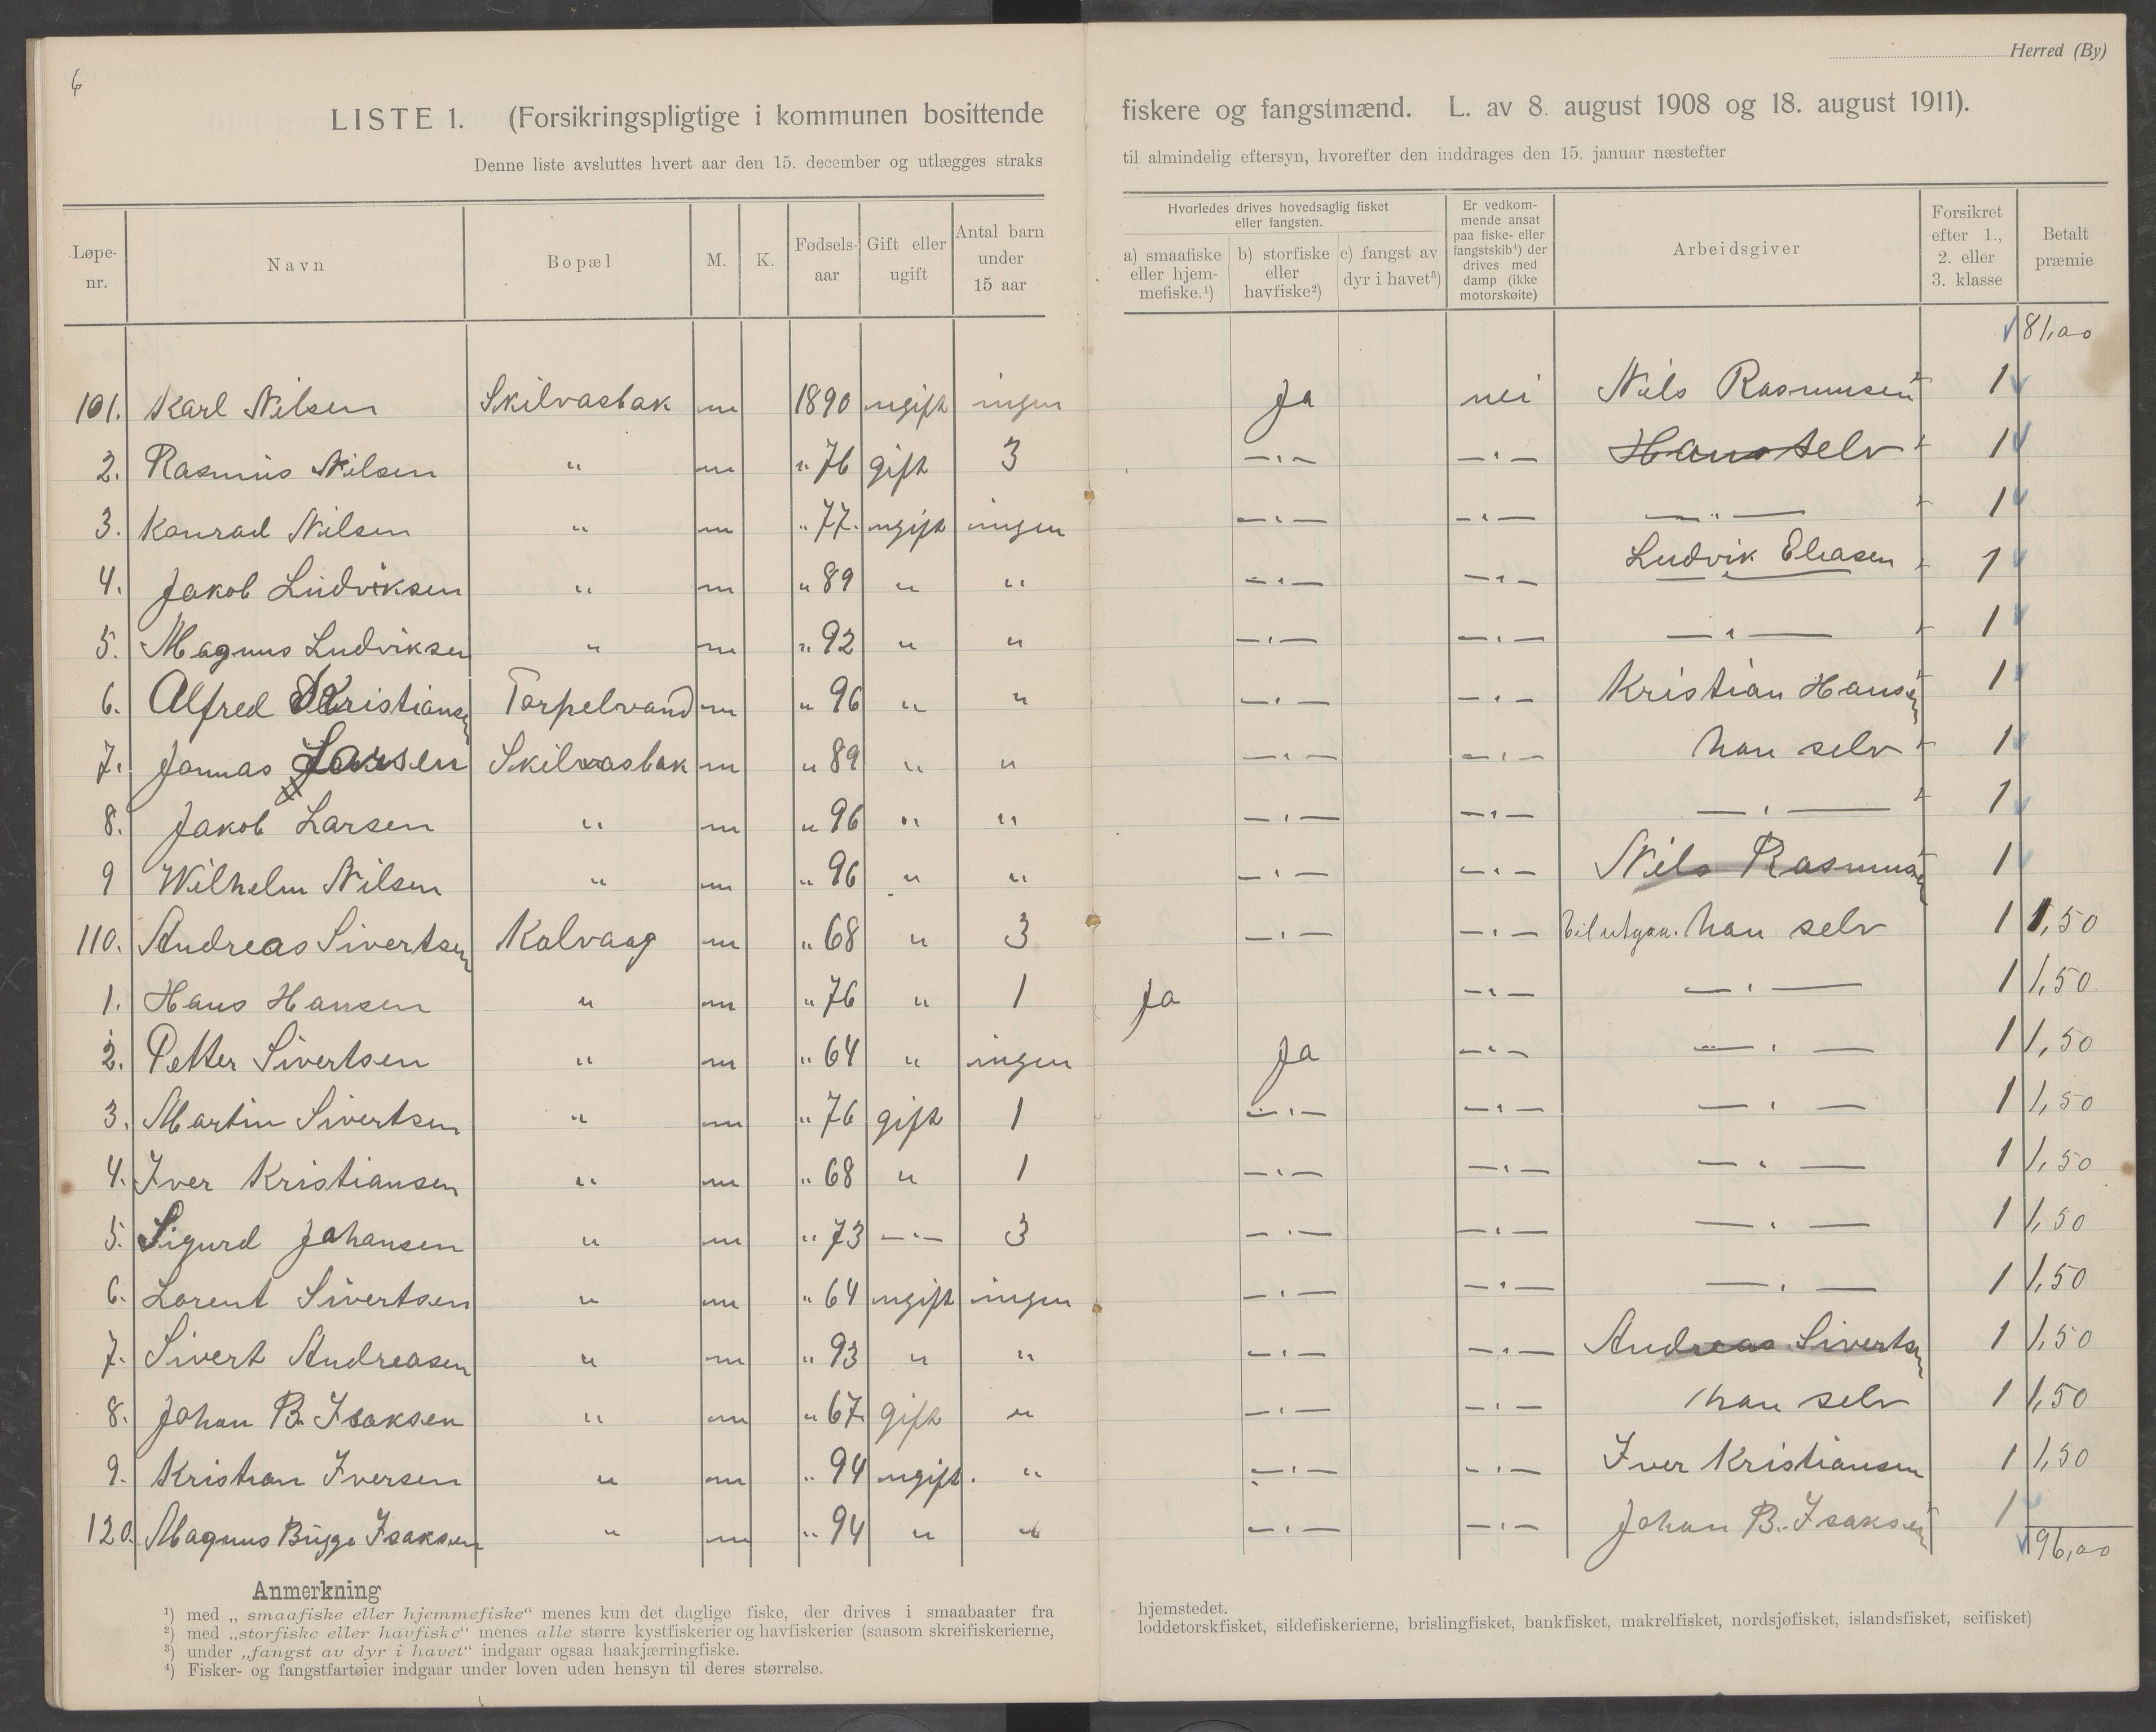 6
Herred (By)
LISTE 1. (Forsikringspligtige i kommunen bosittende fiskere og fangstmænd. L. av 8. august 1908 og 18. august 1911).
Denne liste avsluttes hvert aar den 15. december og utlægges straks til almindelig eftersyn, hvorefter den inddrages den 15. januar næstefter
Løpe-nr. Navn Bopæl M. K. Fødsels-aar Gift eller ugift Antal barn under 15 aar Hvorledes drives hovedsaglig fisket eller fangsten. a) smaafiske eller hjem-mefiske.¹) b) storfiske eller havfiske²) c) fangst av dyr i havet³) Er vedkom-mende ansat paa fiske- eller fangstskib⁴) der drives med damp (ikke motorskøite) Arbeidsgiver Forsikret efter 1., 2. eller 3. klasse Betalt præmie
81,00
101. Karl Nilsen Skilvasbak m 1890 ugift ingen Ja nei Nils Rasmusen 1
2. Rasmus Nilsen " m " 76 gift 3 —"— —"— Han selv 1
3. Konrad Nilsen " m " 77. ugift ingen —"— —"— —"— 1
4. Jakob Ludviksen " m " 89 " " —"— —"— Ludvik Eliasen 1
5. Magnus Ludviksen " m " 92 " " —"— —"— —"— 1
6. Alfred Kristiansen Torpelvand m " 96 " " —"— —"— Kristian Hansen 1
7. Jonas Larsen Skilvasbak m " 89 " " —"— —"— han selv 1
8. Jakob Larsen " m " 96 " " —"— —"— —"— 1
9 Wilhelm Nilsen " m " 96 " " —"— —"— Nils Rasmusen 1
110. Andreas Sivertsen Kalvaag m " 68 " 3 —"— —"— han selv 1 1,50
1. Hans Hansen " m " 76 " 1 Ja —"— —"— 1 1,50.
2. Petter Sivertsen " m " 64 " ingen Ja —"— —"— 1 1,50
3. Martin Sivertsen " m " 76 gift 1 —"— —"— —"— 1 1,50
4. Iver Kristiansen " m " 68 " 1 —"— —"— —"— 1 1,50
5. Sigurd Johansen " m " 73 —"— 3 —"— —"— —"— 1 1,50
6. Lorent Sivertsen " m " 64 ugift ingen —"— —"— —"— 1 1,50
7. Sivert Andreasen " m " 93 " " —"— —"— Andreas Sivertsen 1 1,50
8. Johan B. Isaksen " m " 67. gift " —"— —"— han selv 1 1,50
9. Kristian Iversen " m " 94 ugift. " —"— —"— Iver Kristiansen 1 1,50
120. Magnus Bugge Isaksen " m " 94 " " —"— —"— Johan B. Isaksen 1
96,00
Anmerkning
¹) med „smaafiske eller hjemmefiske“ menes kun det daglige fiske, der drives i smaabaater fra hjemstedet.
²) med „storfiske eller havfiske“ menes alle større kystfiskerier og havfiskerier (saasom skreifiskerierne, loddetorskfisket, sildefiskerierne, brislingfisket, bankfisket, makrelfisket, nordsjøfisket, islandsfisket, seifisket)
³) under „fangst av dyr i havet“ indgaar ogsaa haakjærringfiske.
⁴) Fisker- og fangstfartøier indgaar under loven uden hensyn til deres størrelse.